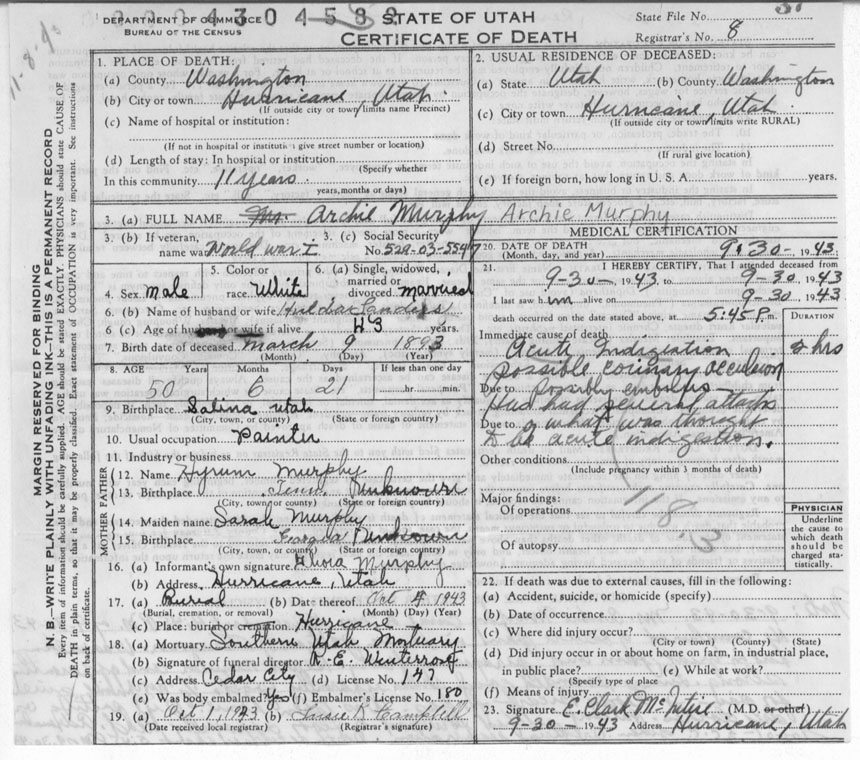 DEPARTMENT OF COMMERCE
BUREAU OF THE CENSUS
STATE OF UTAH
CERTIFICATE OF DEATH
State File No. 37
Registrar's No. 8
11-8-43
MARGIN RESERVED FOR BINDING
N. B.—WRITE PLAINLY WITH UNFADING INK—THIS IS A PERMANENT RECORD
Every item of information should be carefully supplied. AGE should be stated EXACTLY. PHYSICIANS should state CAUSE OF
DEATH in plain terms, so that it may be properly classified. Exact statement of OCCUPATION is very important. See instructions
on back of certificate.
1. PLACE OF DEATH:
(a) County Washington
(b) City or town Hurricane, Utah.
(If outside city or town limits name Precinct)
(c) Name of hospital or institution:
(If not in hospital or institution give street number or location)
(d) Length of stay: In hospital or institution
(Specify whether
In this community 11 years.
years, months or days)
2. USUAL RESIDENCE OF DECEASED:
(a) State Utah (b) County Washington
(c) City or town Hurricane, Utah.
(If outside city or town limits write RURAL)
(d) Street No.
(If rural give location)
(e) If foreign born, how long in U. S. A. years.
3. (a) FULL NAME Archie Murphy Archie Murphy
3. (b) If veteran, name war World War I
3. (c) Social Security No. 529-03-5547
4. Sex male
5. Color or race White
6. (a) Single, widowed, married or divorced married
6. (b) Name of husband or wife
6. (c) Age of husband or wife if alive 43 years.
7. Birth date of deceased March 9 1893
(Month) (Day) (Year)
8. AGE Years Months Days If less than one day
50 6 21 hr. min.
9. Birthplace Salina Utah
(City, town, or county) (State or foreign country)
10. Usual occupation Painter
11. Industry or business
FATHER
12. Name Hyrum Murphy
13. Birthplace Tenn. Unknown
(City, town or county) (State or foreign country)
MOTHER
14. Maiden name Sarah Murphy
15. Birthplace Georgia Unknown
(City, town, or county) (State or foreign country)
16. (a) Informant's own signature Murphy
(b) Address Hurricane, Utah
17. (a) Burial (b) Date thereof Oct 4 1943
(Burial, cremation, or removal) (Month) (Day) (Year)
(c) Place: burial or cremation Hurricane
18. (a) Mortuary Southern Utah Mortuary
(b) Signature of funeral director R. E. Winterrose
(c) Address Cedar City (d) License No. 147
(e) Was body embalmed? Yes (f) Embalmer's License No. 180
19. (a) Oct 1, 1943 (b) Susie K Campbell
(Date received local registrar) (Registrar's signature)
MEDICAL CERTIFICATION
20. DATE OF DEATH (Month, day, and year) 9-30-, 1943
21. I HEREBY CERTIFY, That I attended deceased from
9-30-, 1943 to 9-30, 1943
I last saw him alive on 9-30, 1943
death occurred on the date stated above, at 5:45 P.m.
DURATION
Immediate cause of death
Acute Indigestion 2 hrs
possible coronary occlusion
Due to Possibly embolus—
Has had several attacks
Due to of what was thought
to be acute indigestion.
Other conditions
(Include pregnancy within 3 months of death)
Major findings:
Of operations
Of autopsy
PHYSICIAN
Underline
the cause to
which death
should be
charged sta-
tistically.
22. If death was due to external causes, fill in the following:
(a) Accident, suicide, or homicide (specify)
(b) Date of occurrence
(c) Where did injury occur?
(City or town) (County) (State)
(d) Did injury occur in or about home on farm, in industrial place,
in public place? (e) While at work?
(Specify type of place
(f) Means of injury
23. Signature E. Clark McIntire (M.D. or other)
9-30-1943 Address Hurricane, Utah